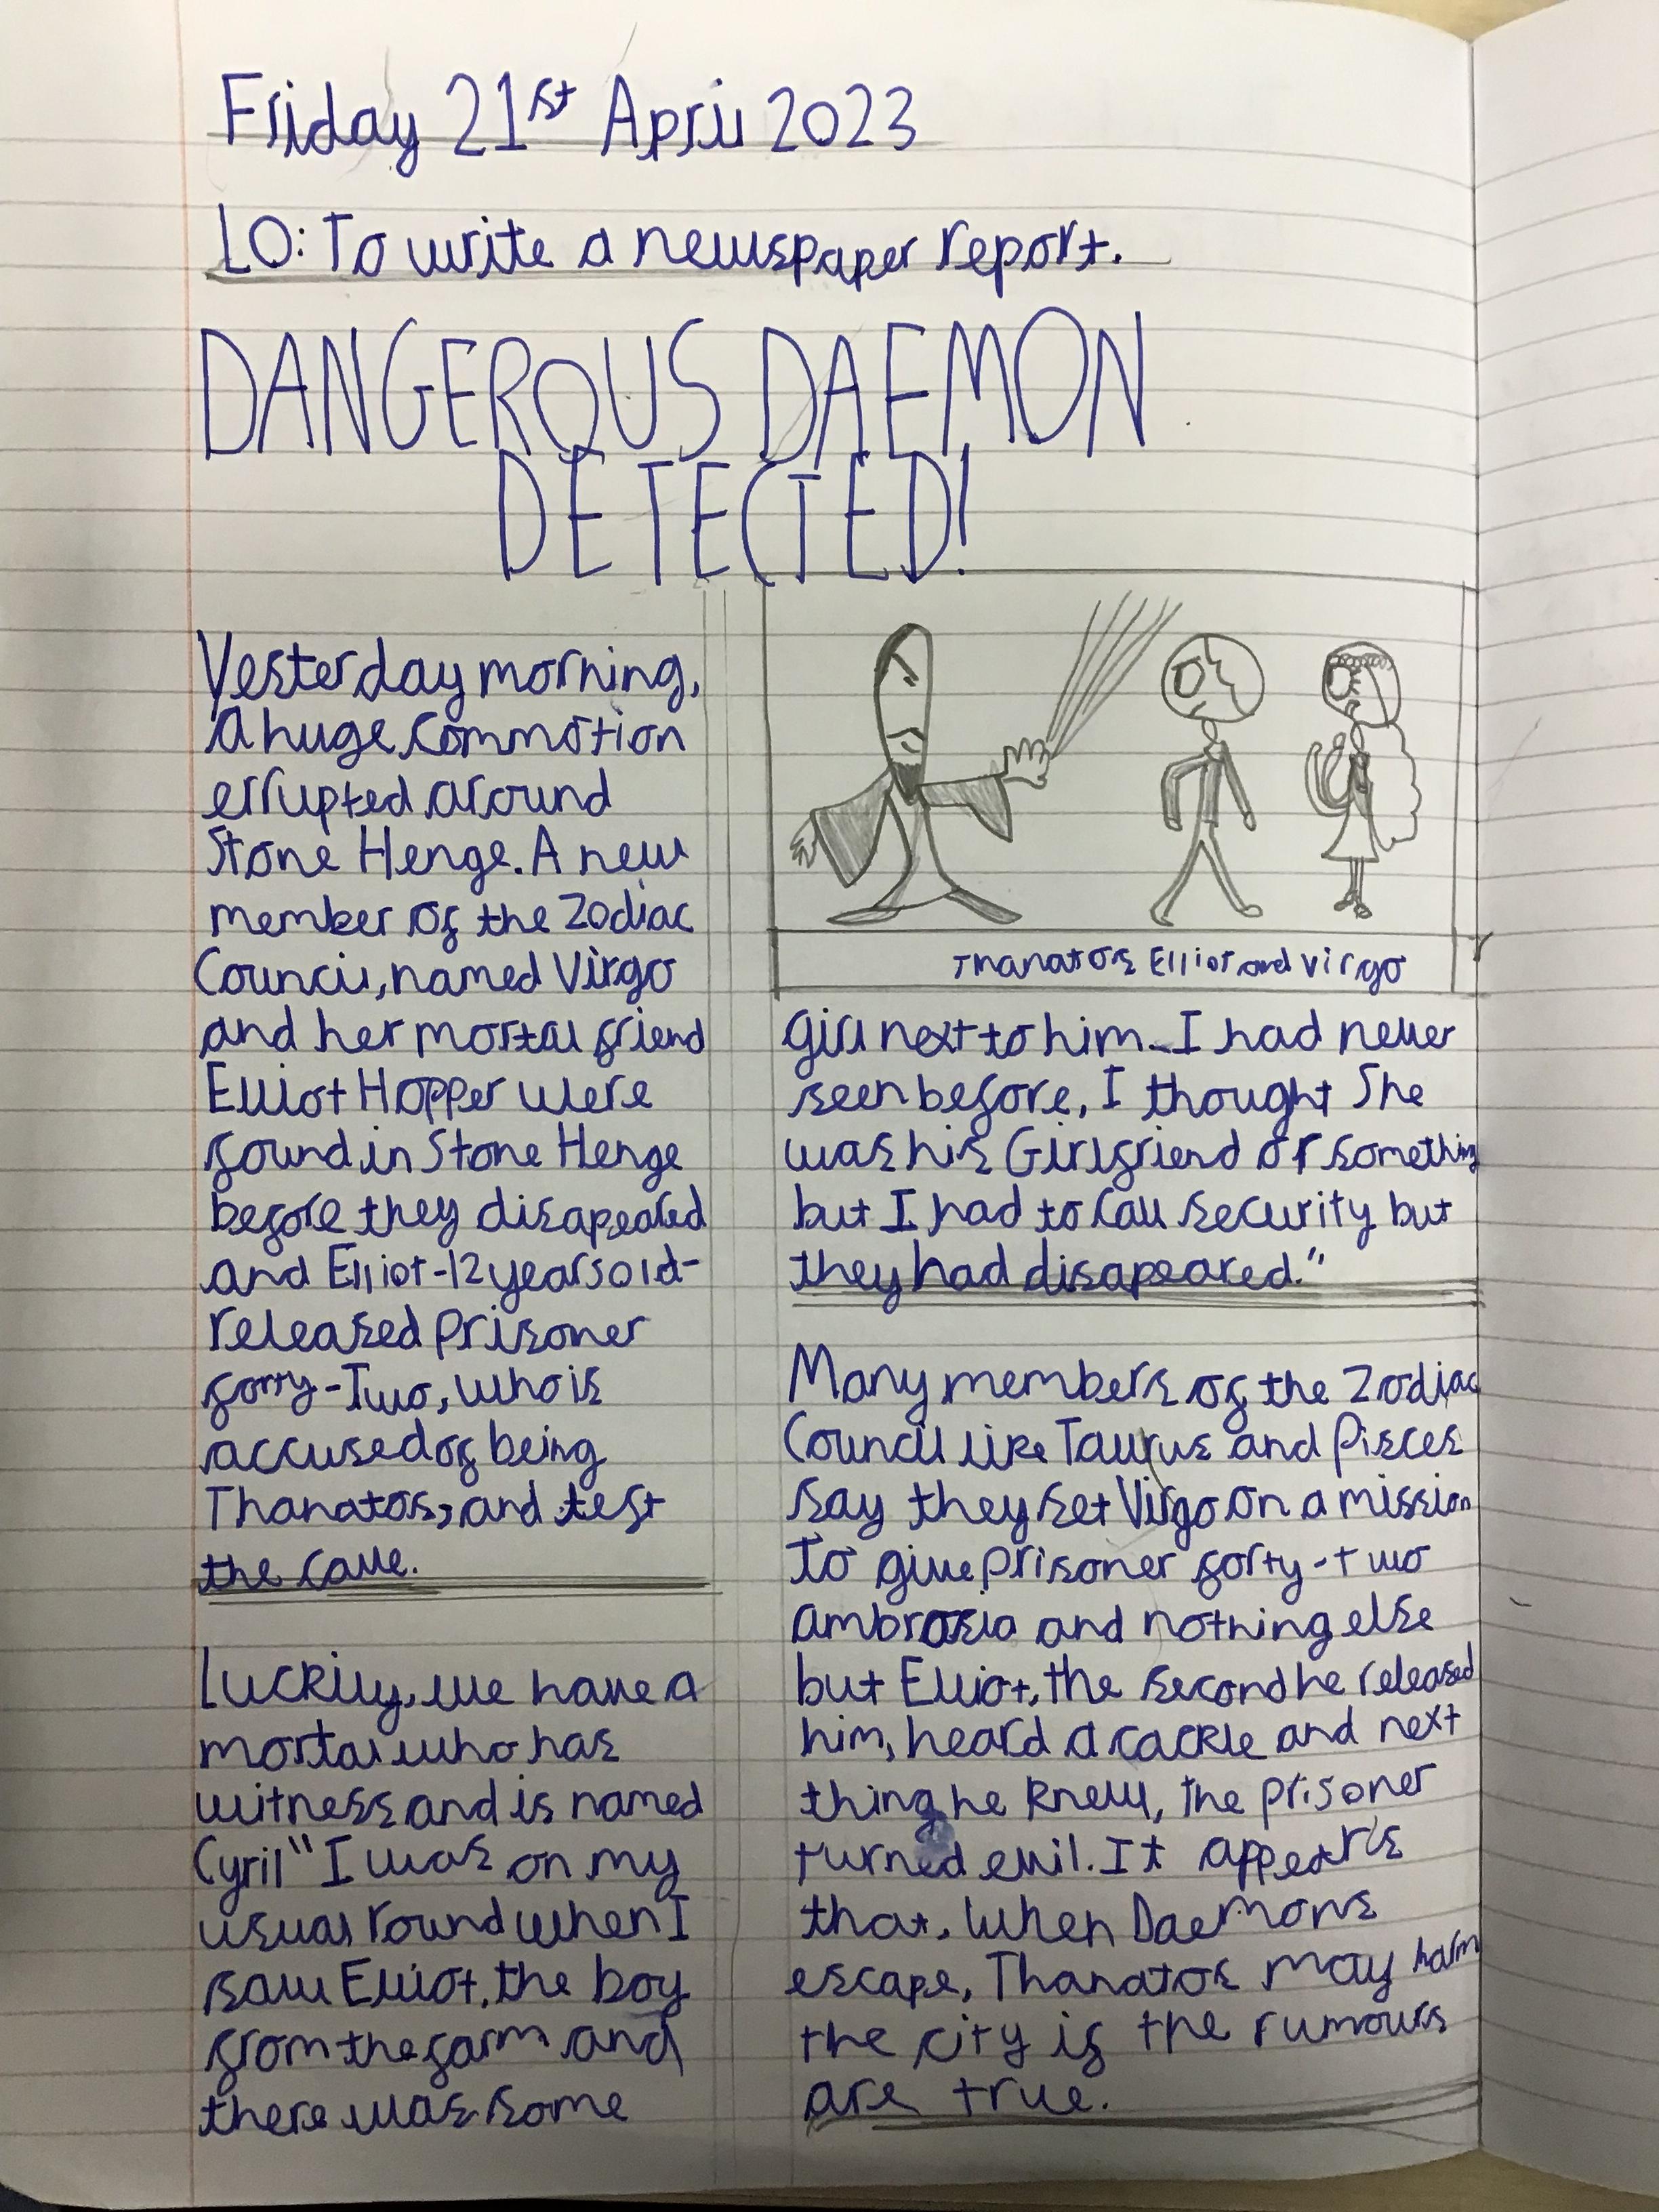 Friday 21st April 2023
LO: To write a newspaper report.
DANGEROUS DAEMON
DETECTED!
Yesterday morning,
a huge commotion
errupted around
Stone Henge. A new
member of the Zodiac
Council, named Virgo
and her mortal friend
Elliot Hopper were
found in Stone Henge
before they disapeared
and Elliot-12 years old-
released prisoner
forty-Two, who is
accused of being
Thanatos, and left
the cave.
Luckily, we have a
mortal who has
witness and is named
Cyril "I was on my
usual round when I
saw Elliot, the boy
from the farm and
there was some
Thanatos Elliot and Virgo
girl next to him. I had never
seen before, I thought She
was his Girlfriend or something
but I had to call security but
they had disapeared."
Many members of the Zodiac
Council like Taurus and Pisces
say they set Virgo on a mission
to give prisoner forty-two
ambrosia and nothing else
but Elliot, the second he released
him, heard a cackle and next
thing he knew, the prisoner
turned evil. It appears
that, when Daemons
escape, Thanatos may harm
the city if the rumours
are true.